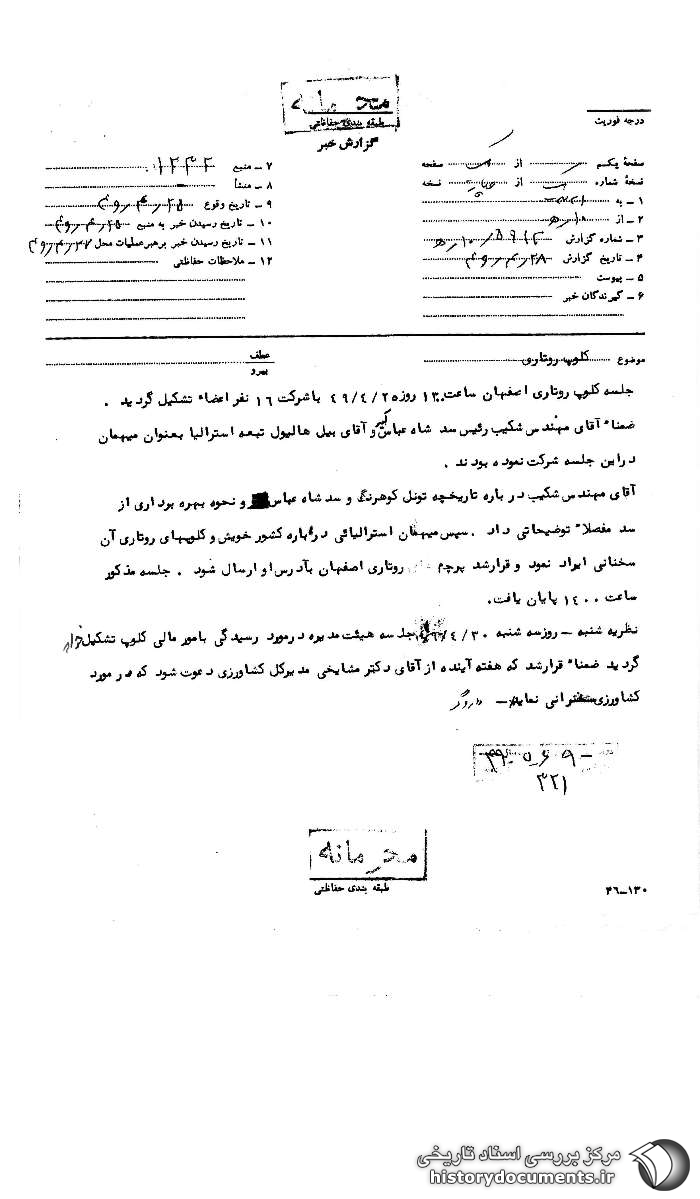 محرمانه
طبقه بندی حفاظتی
گزارش خبر
درجه فوریت
صفحه یکم از صفحه
نسخه شماره از نسخه
۱ ـ به ۳۲۱
۲ ـ از ۱۰ه
۳ ـ شماره گزارش ۵۹۱۲/۱۰ه
۴ ـ تاریخ گزارش ۴۹٫۴٫۲۸
۵ ـ پیوست
۶ ـ گیرندگان خبر
۷ ـ منبع ۱۲۳۲
۸ ـ منشأ
۹ ـ تاریخ وقوع ۴۹٫۴٫۲۵
۱۰ ـ تاریخ رسیدن خبر به منبع ۴۹٫۴٫۲۵
۱۱ ـ تاریخ رسیدن خبر برهبر عملیات محل ۴۹٫۴٫۲۷
۱۲ ـ ملاحظات حفاظتی
موضوع کلوپ روتاری
عطف
پیرو
جلسه کلوپ روتاری اصفهان ساعت ۱۳۰۰ روز ۴۹/۴/۲۵ با شرکت ۱۶ نفر اعضاء تشکیل گردید .
ضمناً آقای مهندس شکیب رئیس سد شاه عباس کبیر و آقای بیل هالیول تبعه استرالیا بعنوان میهمان
در این جلسه شرکت نموده بودند .
آقای مهندس شکیب در باره تاریخچه تونل کوهرنگ و سد شاه عباس و نحوه بهره برداری از
سد مفصلاً توضیحاتی داد . سپس میهمان استرالیائی در باره کشور خویش و کلوپهای روتاری آن
سخنانی ایراد نمود و قرار شد پرچم روتاری اصفهان بآدرس او ارسال شود . جلسه مذکور
ساعت ۱۴۰۰ پایان یافت.
نظریه شنبه ـ روز سه شنبه ۴/۳۰ جلسه هیئت مدیره در مورد رسیدگی بامور مالی کلوپ تشکیل
گردید ضمناً قرار شد که هفته آینده از آقای دکتر مشایخی مدیرکل کشاورزی دعوت شود که در مورد
کشاورزی سخنرانی نماید ـ
۳۲۱
محرمانه
طبقه بندی حفاظتی
۳۶-۱۳۰
مرکز بررسی اسناد تاریخی
historydocuments.ir